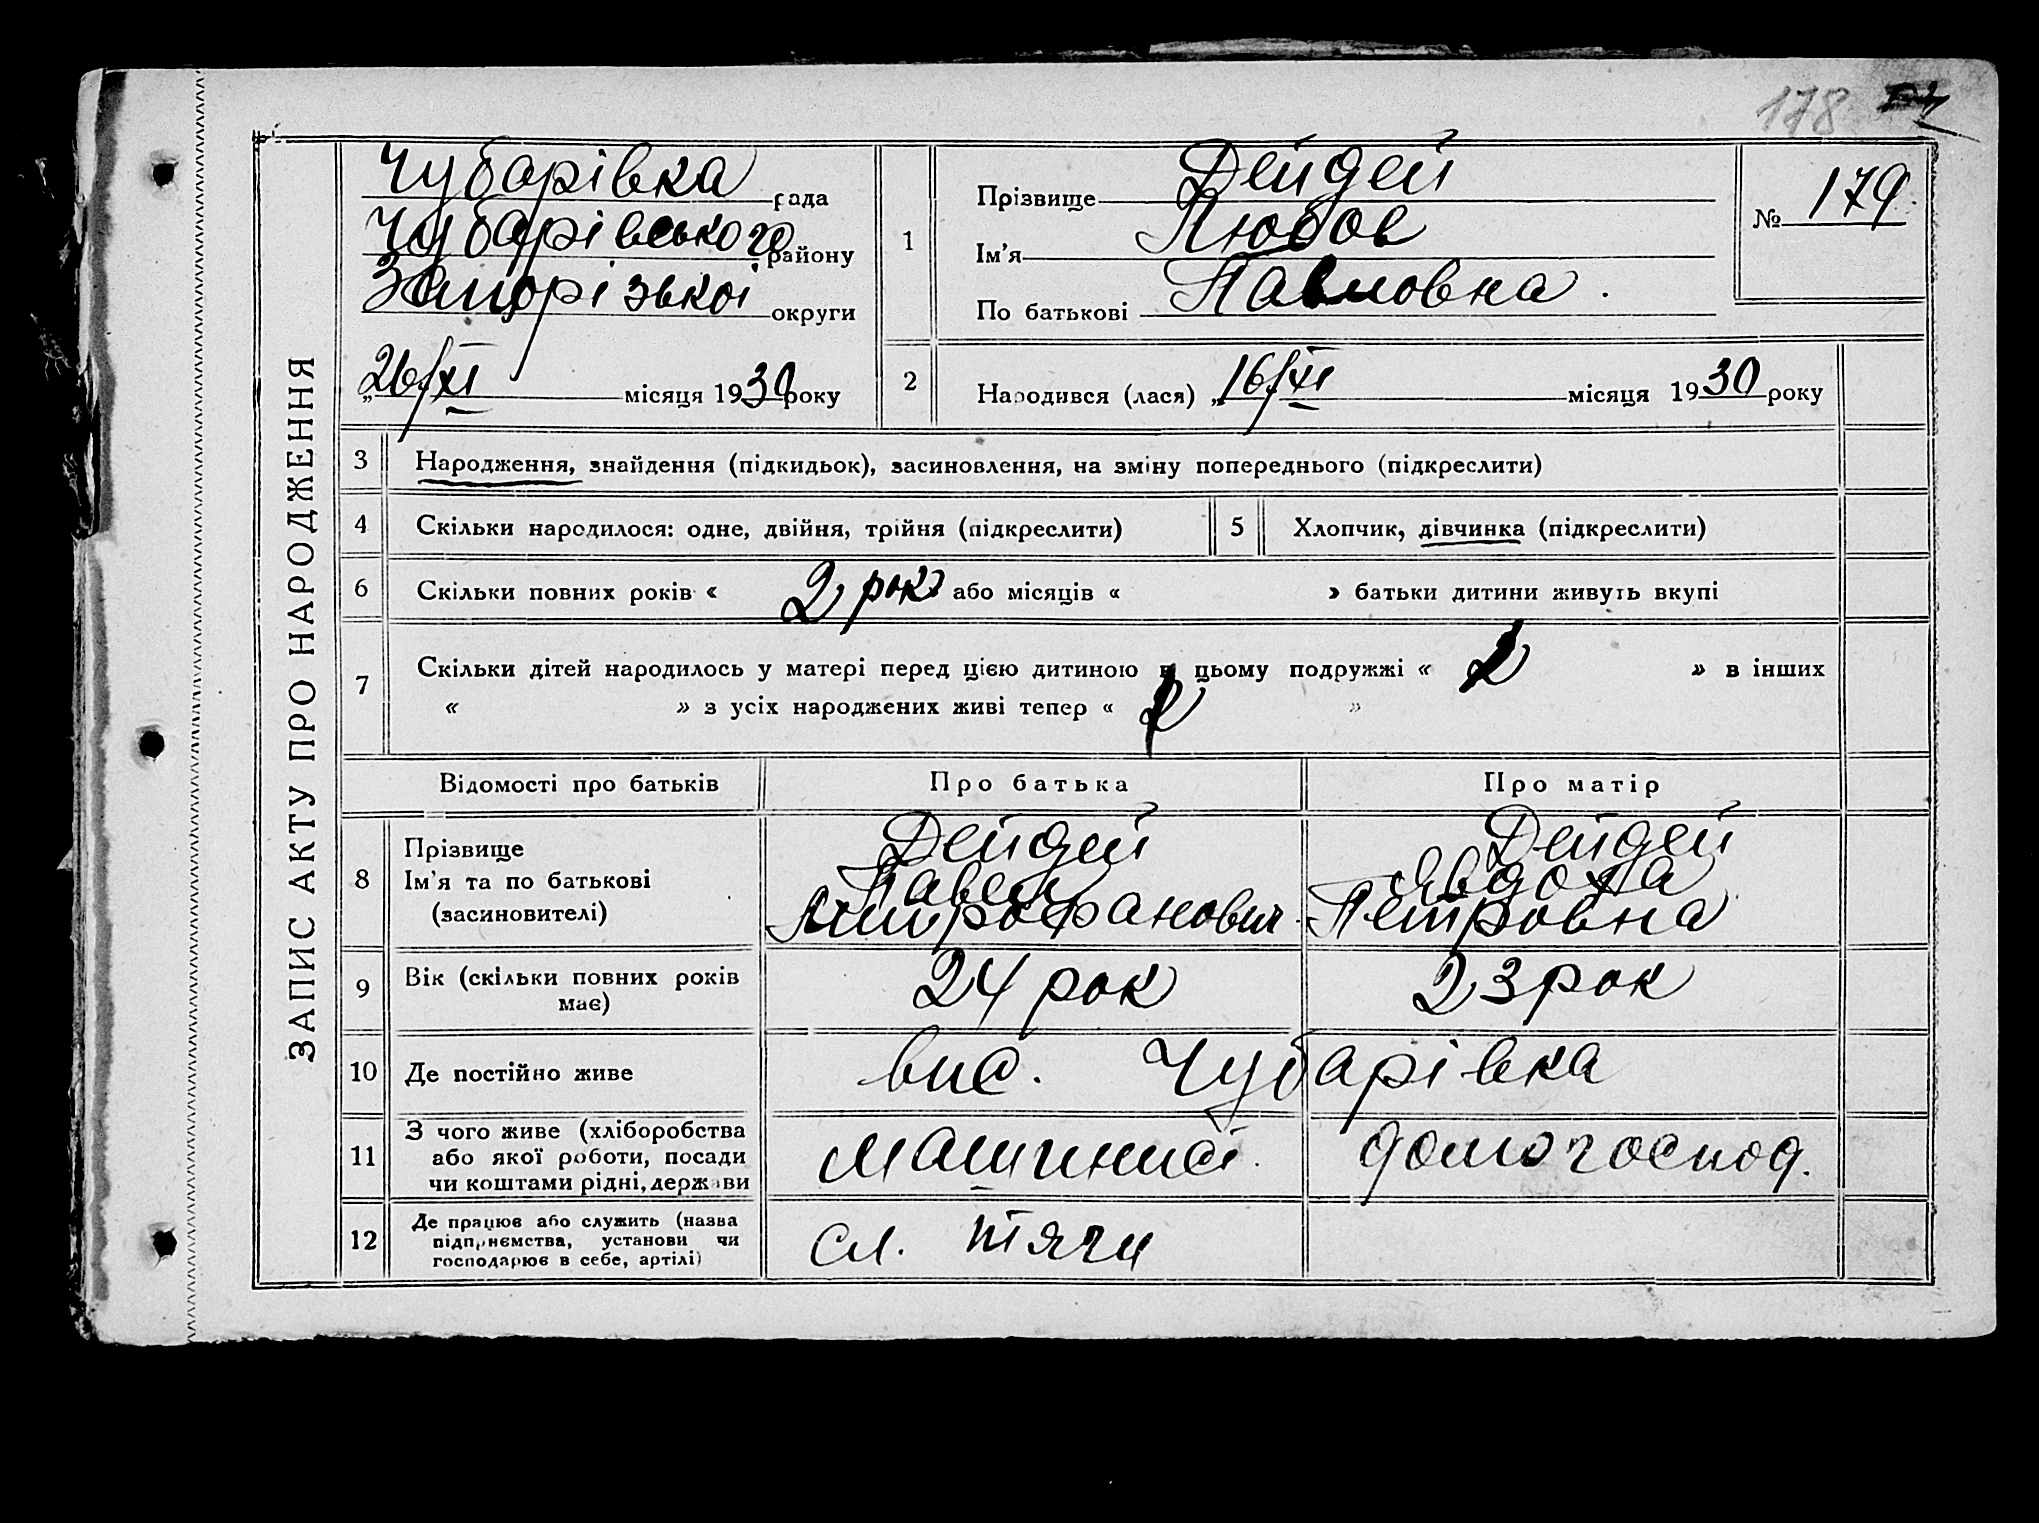 178
ЗАПИС АКТУ ПРО НАРОДЖЕННЯ
Чубарівка рада
Чубарівського району
Запорізької округи
„26/XI місяця 1930 року
1
Прізвище Дейдей
Ім'я Любов
По батькові Павловна.
№ 179
2
Народився (лася) „16/XI місяця 1930 року
3 Народження, знайдення (підкидьок), засиновлення, на зміну попереднього (підкреслити)
4 Скільки народилося: одне, двійня, трійня (підкреслити) 5 Хлопчик, дівчинка (підкреслити)
6 Скільки повних років « 2 рок або місяців « » батьки дитини живуть вкупі
7 Скільки дітей народилось у матері перед цією дитиною в цьому подружжі « 2 » в інших
« » з усіх народжених живі тепер « 2 »
Відомості про батьків Про батька Про матір
8
Прізвище Дейдей Дейдей
Ім'я та по батькові Павел Явдоха
(засиновителі) Митрофанович Петровна
9 Вік (скільки повних років має) 24 рок 23 рок
10 Де постійно живе вис. Чубарівка
11
З чого живе (хліборобства
або якої роботи, посади
чи коштами рідні, держави
машиніст. домогоспод.
12
Де працює або служить (назва
підприємства, установи чи
господарює в себе, артілі)
сл. тяги